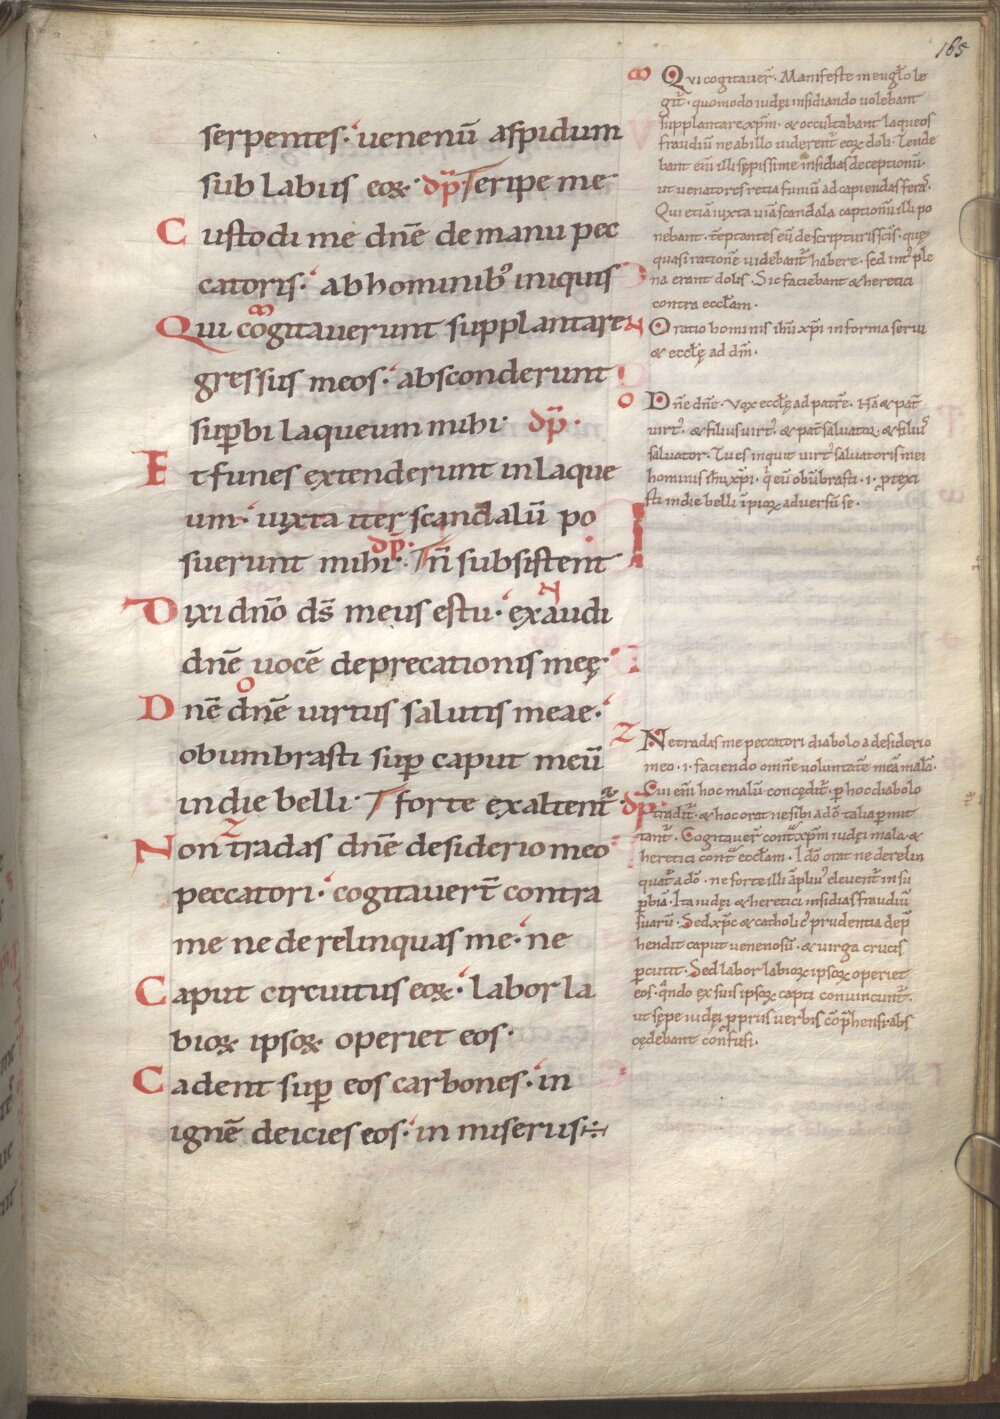 165
serpentes· uenenū aspidum
sub labiis eoꝝ· dp̄· eripe me
Custodi me dn̄e de manu pec
catoris· ab hominib; iniquis
Qui cogitauerunt supplantare
gressus meos· absconderunt
sup̄bi laqueum mihi· dp̄·
Et funes extenderunt in laque
um· iuxta iter scandalū po
suerunt mihi· dp̄· n̄ subsistent
Dixi dn̄o ds̄ meus es tu· exaudi
dn̄e uocē deprecationis meę·
Dn̄e dn̄e uirtus salutis meae·
obumbrasti sup̄ caput meū
in die belli· forte exaltent̄· dp̄·
Non tradas dn̄e desiderio meo
peccatori· cogitauer̄t contra
me ne derelinquas me· ne
Caput circuitus eoꝝ· labor la
bioꝝ ipsoꝝ operiet eos·
Cadent sup̄ eos carbones· in
ignē deicies eos· in miseriis
Qui cogitauer̄· Manifeste in eugło le
git̄· quomodo iudęi insidiando uolebant
supplantare xp̄m· & occultabant laqueos
fraudiū ne ab illo uiderent̄ eoꝝ doli· Tende
bant eni illi sępissime insidias deceptionū·
ut uenatores retia funiū ad capiendas feras·
Qui etiā iuxta uiā scandala captionū illi po
nebant· tēptantes eū de scripturis scīs· quę
quasi rationē uidebant̄ habere· sed int̄ ple
na erant dolis· Sic faciebant & heretici
contra eccłam·
Oratio hominis ihū xp̄i in forma serui
& eccłę ad dm̄·
Dn̄e dn̄e· uox eccłę ad patrē· Nā & pat̄
uirt̄· & filius uirt̄· & pat̄ saluator· & filius
saluator· Tu es inquit uirt̄ saluatoris mei
hominis ihū xp̄i· q̄ eū obūbrasti· i· p̄texi
sti in die belli īpioꝝ aduersū se·
Ne tradas me peccatori diabolo a desiderio
meo· i· faciendo omnē uoluntatē meā malā·
Cui eni hoc malū concędit̄· p̄ hoc diabolo
tradit̄· & hoc orat ne sibi a dō talia permit
tant̄· Cogitauer̄ cont̄ xp̄m iudęi mala· &
heretici cont̄ eccłam· Idō orat ne derelin
quat̄ a dō· ne forte illi āplius eleuent̄ in su
p̄biā· Ita iudęi & heretici insidias fraudiū
suarū· Sed xp̄c & catholic; prudentia dep̄
hendit caput uenenosū· & uirga crucis
p̄cutit· Sed labor labioꝝ ipsoꝝ operiet
eos· q̄ndo ex suis ipsoꝝ capti conuincunt̄·
ut sępe iudęi p̄priis uerbis cōp̄hensi· abs
cędebant confusi·